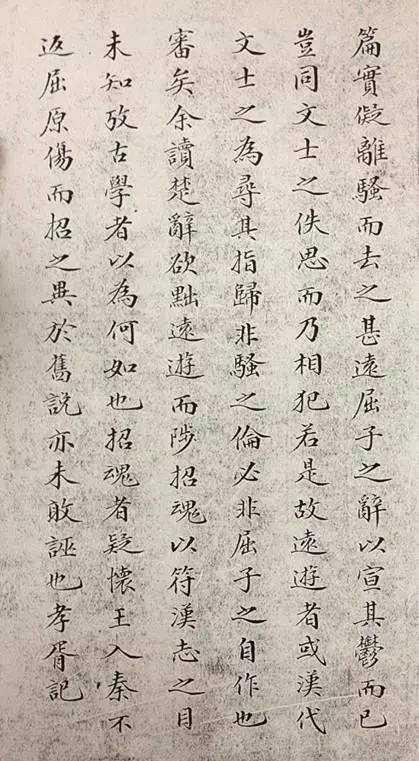 篇實儗離騷而去之甚遠屈子之辭以宣其鬱而已
豈同文士之佚思而乃相犯若是故遠遊者或漢代
文士之為尋其指歸非騷之倫必非屈子之自作也
審矣余讀楚辭欲黜遠遊而陟招魂以符漢志之目
未知攷古學者以為何如也招魂者疑懷王入秦不
返屈原傷而招之異於舊說亦未敢誣也孝胥記